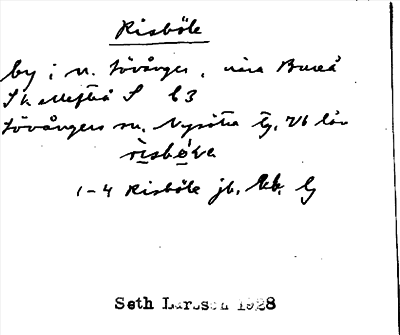 Risböle
by i n. Lövånger, nära Bureå
Skellefteå S 63
Lövångers sn, Nysätra tg, Vb län
risbøle
1-4 Risböle jb, kb, G
Seth Larsson 1928